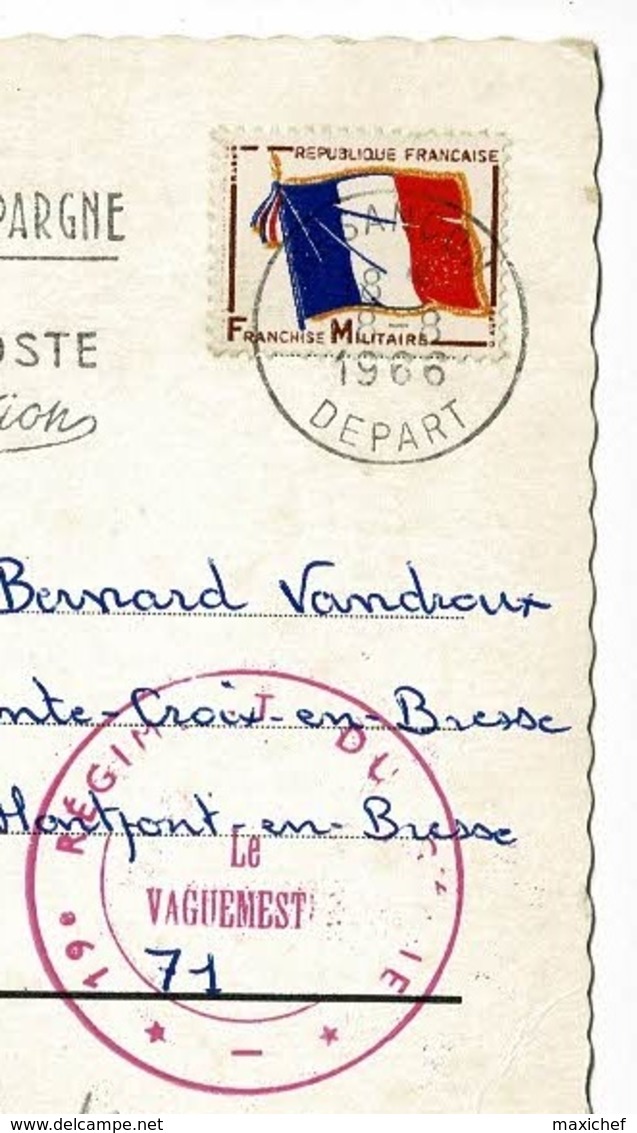 PARGNE
OSTE
tion
REPUBLIQUE FRANCAISE
FRANCHISE MILITAIRE
8-8
1966
DEPART
Bernard Vandroux
nte-Croix-en-Bresse
Montpont-en-Bresse
71
19e REGIM T DU IE
Le
VAGUEMEST
www.delcampe.net
maxichef